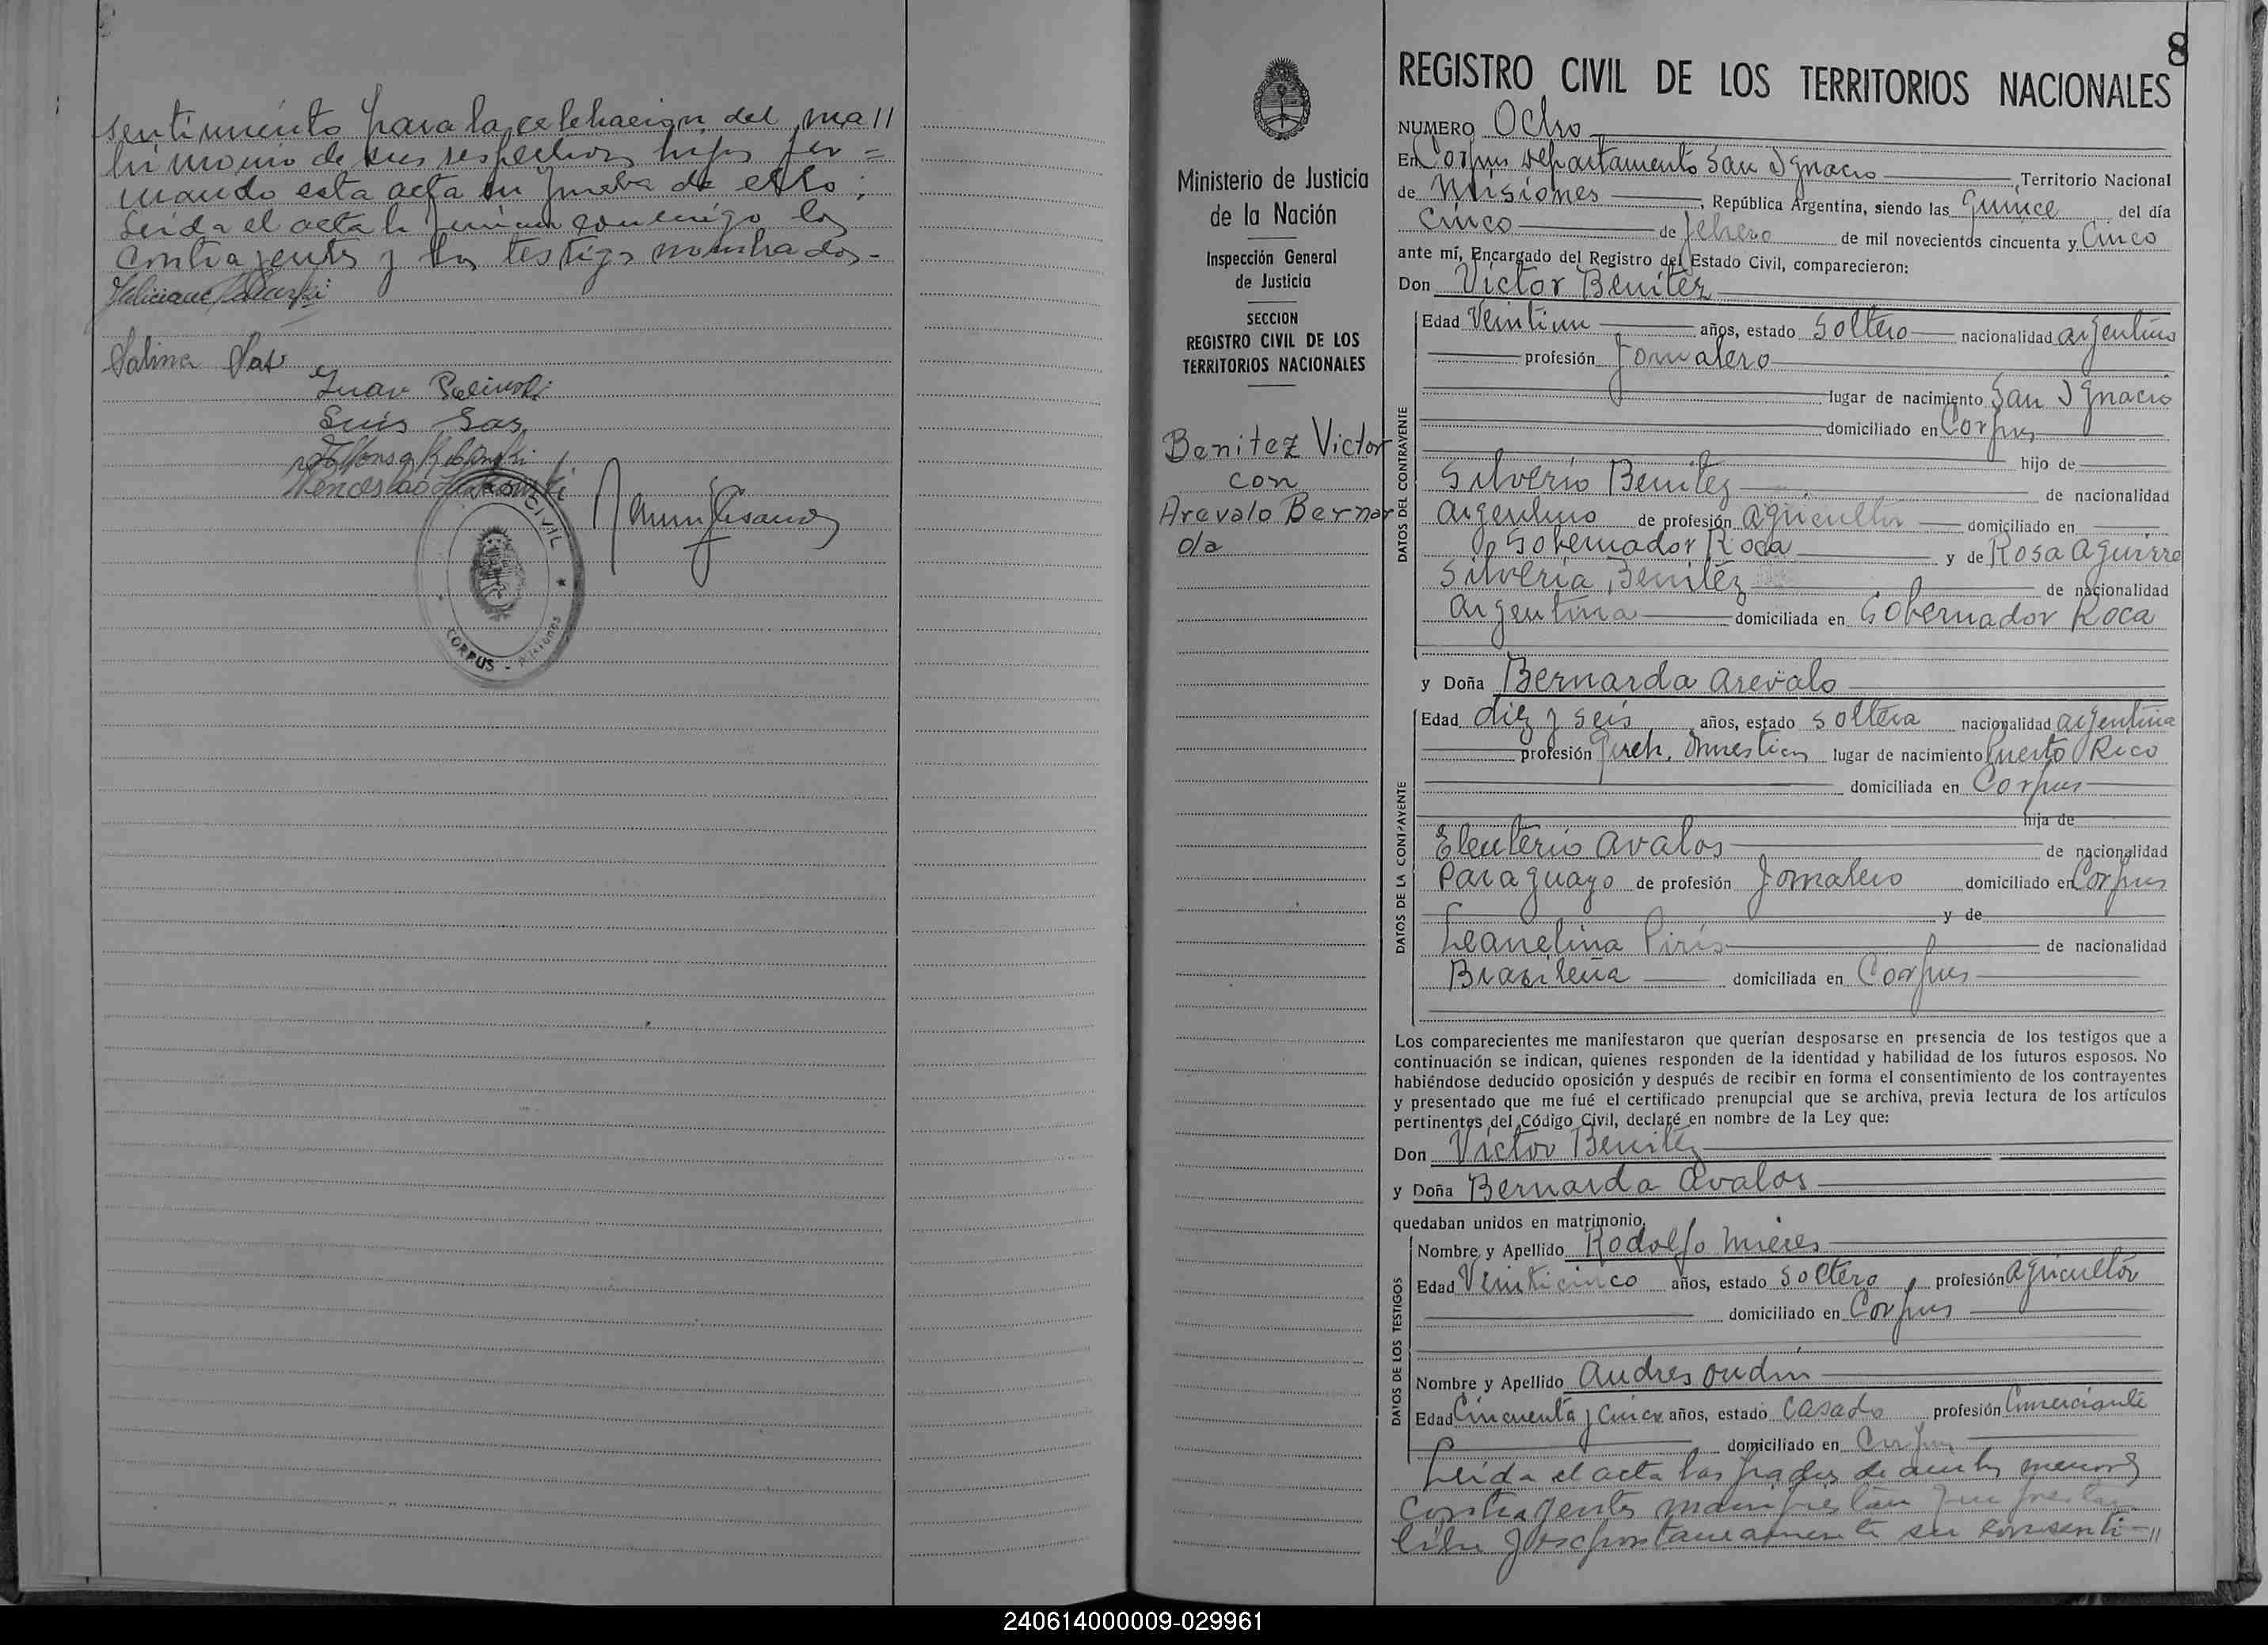 sentimiento para la celebracion del ma//
trimonio de sus respectivos hijos fir=
mando esta acta en prueba de ello;
Leida el acta la firman conmigo los
contrayentes y los testigos nombrados.-
Feliciano
Salina Sas
Juan
Luis Sas
Wenceslao
CIVIL
CORPUS - Misiones
8
REGISTRO CIVIL DE LOS TERRITORIOS NACIONALES
NUMERO Ocho
En Corpus departamento San Ignacio, Territorio Nacional
de Misiones, República Argentina, siendo las quince del día
cinco de febrero de mil novecientos cincuenta y Cinco
ante mí, Encargado del Registro del Estado Civil, comparecieron:
Don Victor Benitez
Edad Veintiun años, estado soltero nacionalidad argentino
profesión Jornalero
lugar de nacimiento San Ignacio
domiciliado en Corpus
hijo de
Silverio Benitez de nacionalidad
argentino de profesión agricultor domiciliado en
Gobernador Roca y de Rosa Aguirre
Silveria Benitez de nacionalidad
argentina domiciliada en Gobernador Roca
y Doña Bernarda Arevalo
Edad diez y seis años, estado soltera nacionalidad argentina
profesión lugar de nacimiento Puerto Rico
domiciliada en Corpus
hija de
Eleuterio Avalos de nacionalidad
Paraguayo de profesión Jornalero domiciliado en Corpus
y de
Leanelina Piris de nacionalidad
Brasileña domiciliada en Corpus
Los comparecientes me manifestaron que querían desposarse en presencia de los testigos que a
continuación se indican, quienes responden de la identidad y habilidad de los futuros esposos. No
habiéndose deducido oposición y después de recibir en forma el consentimiento de los contrayentes
y presentado que me fué el certificado prenupcial que se archiva, previa lectura de los artículos
pertinentes del Código Civil, declaré en nombre de la Ley que:
Don Victor Benitez
y Doña Bernarda Avalos
quedaban unidos en matrimonio.
Nombre y Apellido Rodolfo Mieres
Edad Veinticinco años, estado soltero, profesión agricultor
domiciliado en Corpus
Nombre y Apellido Andres Oudin
Edad Cincuenta y cinco años, estado casado profesión Comerciante
domiciliado en Corpus
Leida el acta los padres de ambos menores
contrayentes manifiestan que prestan
libre y espontaneamente su consenti-//
Ministerio de Justicia
de la Nación
Inspección General
de Justicia
SECCION
REGISTRO CIVIL DE LOS
TERRITORIOS NACIONALES
Benitez Victor
con
Arevalo Bernar
da
DATOS DEL CONTRAYENTE
DATOS DE LA CONTRAYENTE
DATOS DE LOS TESTIGOS
240614000009-029961